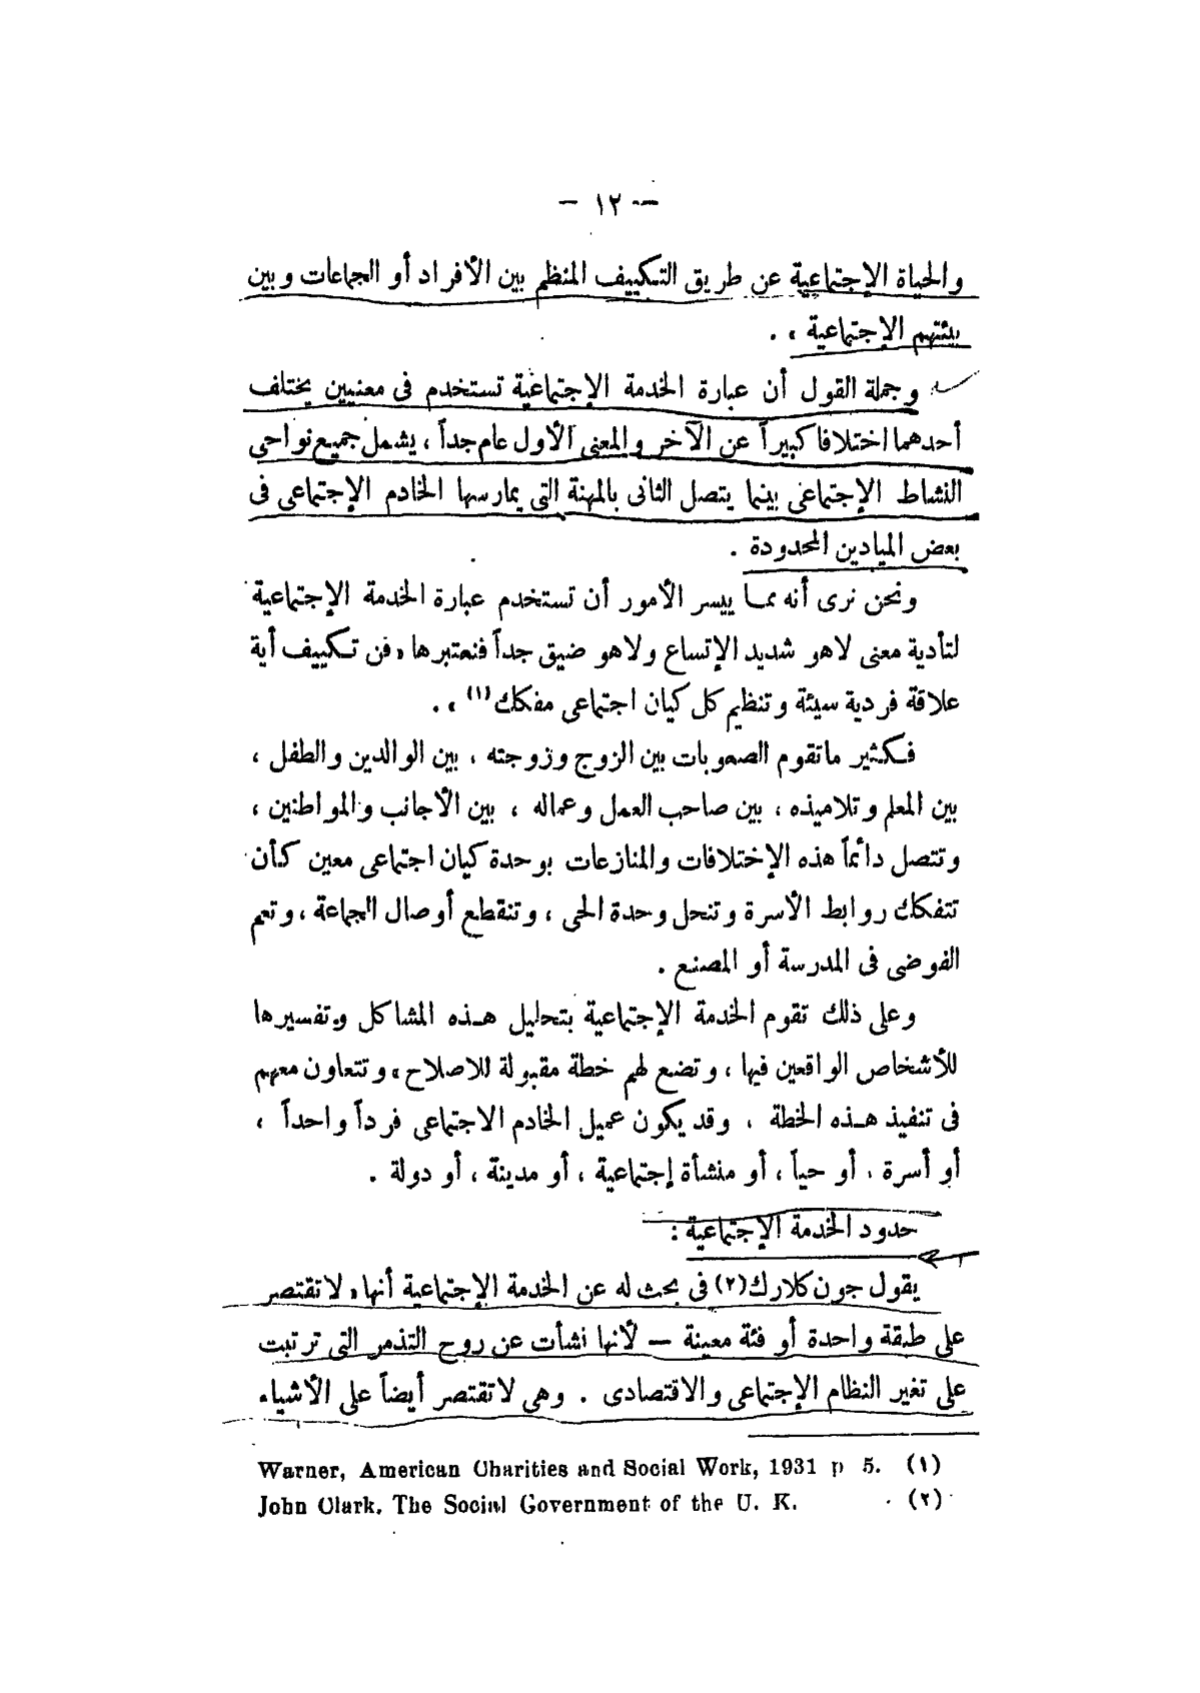 — ١٢ —
والحياة الإجتماعية عن طريق التكييف المنظم بين الأفراد أو الجماعات وبين
بيئتهم الإجتماعية ، .
وجملة القول أن عبارة الخدمة الإجتماعية تستخدم فى معنيين يختلف
أحدهما اختلافا كبيراً عن الآخر والمعنى الأول عام جداً ، يشمل جميع نواحى
النشاط الإجتماعى بينما يتصل الثانى بالمهنة التى يمارسها الخادم الإجتماعى فى
بعض الميادين المحدودة .
ونحن نرى أنه مما ييسر الأمور أن تستخدم عبارة الخدمة الإجتماعية
لتأدية معنى لاهو شديد الإتساع ولاهو ضيق جداً فنعتبرها « فن تكييف أية
علاقة فردية سيئة وتنظيم كل كيان اجتماعى مفكك (١) » .
فكثير ماتقوم الصعوبات بين الزوج وزوجته ، بين الوالدين والطفل ،
بين المعلم وتلاميذه ، بين صاحب العمل وعماله ، بين الأجانب والمواطنين ،
وتتصل دائماً هذه الإختلافات والمنازعات بوحدة كيان اجتماعى معين كأن
تتفكك روابط الأسرة وتنحل وحدة الحى ، وتنقطع أوصال الجماعة ، وتعم
الفوضى فى المدرسة أو المصنع .
وعلى ذلك تقوم الخدمة الإجتماعية بتحليل هذه المشاكل وتفسيرها
للأشخاص الواقعين فيها ، وتضع لهم خطة مقبولة للاصلاح ، وتتعاون معهم
فى تنفيذ هذه الخطة ، وقد يكون عميل الخادم الاجتماعى فرداً واحداً ،
أو أسرة ، أو حياً ، أو منشأة إجتماعية ، أو مدينة ، أو دولة .
حدود الخدمة الإجتماعية :
يقول جون كلارك (٢) فى بحث له عن الخدمة الإجتماعية أنها « لاتقتصر
على طبقة واحدة أو فئة معينة — لأنها نشأت عن روح التذمر التى ترتبت
على تغير النظام الإجتماعى والاقتصادى . وهى لاتقتصر أيضاً على الأشياء
Warner, American Charities and Social Work, 1931 p 5. (١)
John Clark, The Social Government of the U. K. (٢)